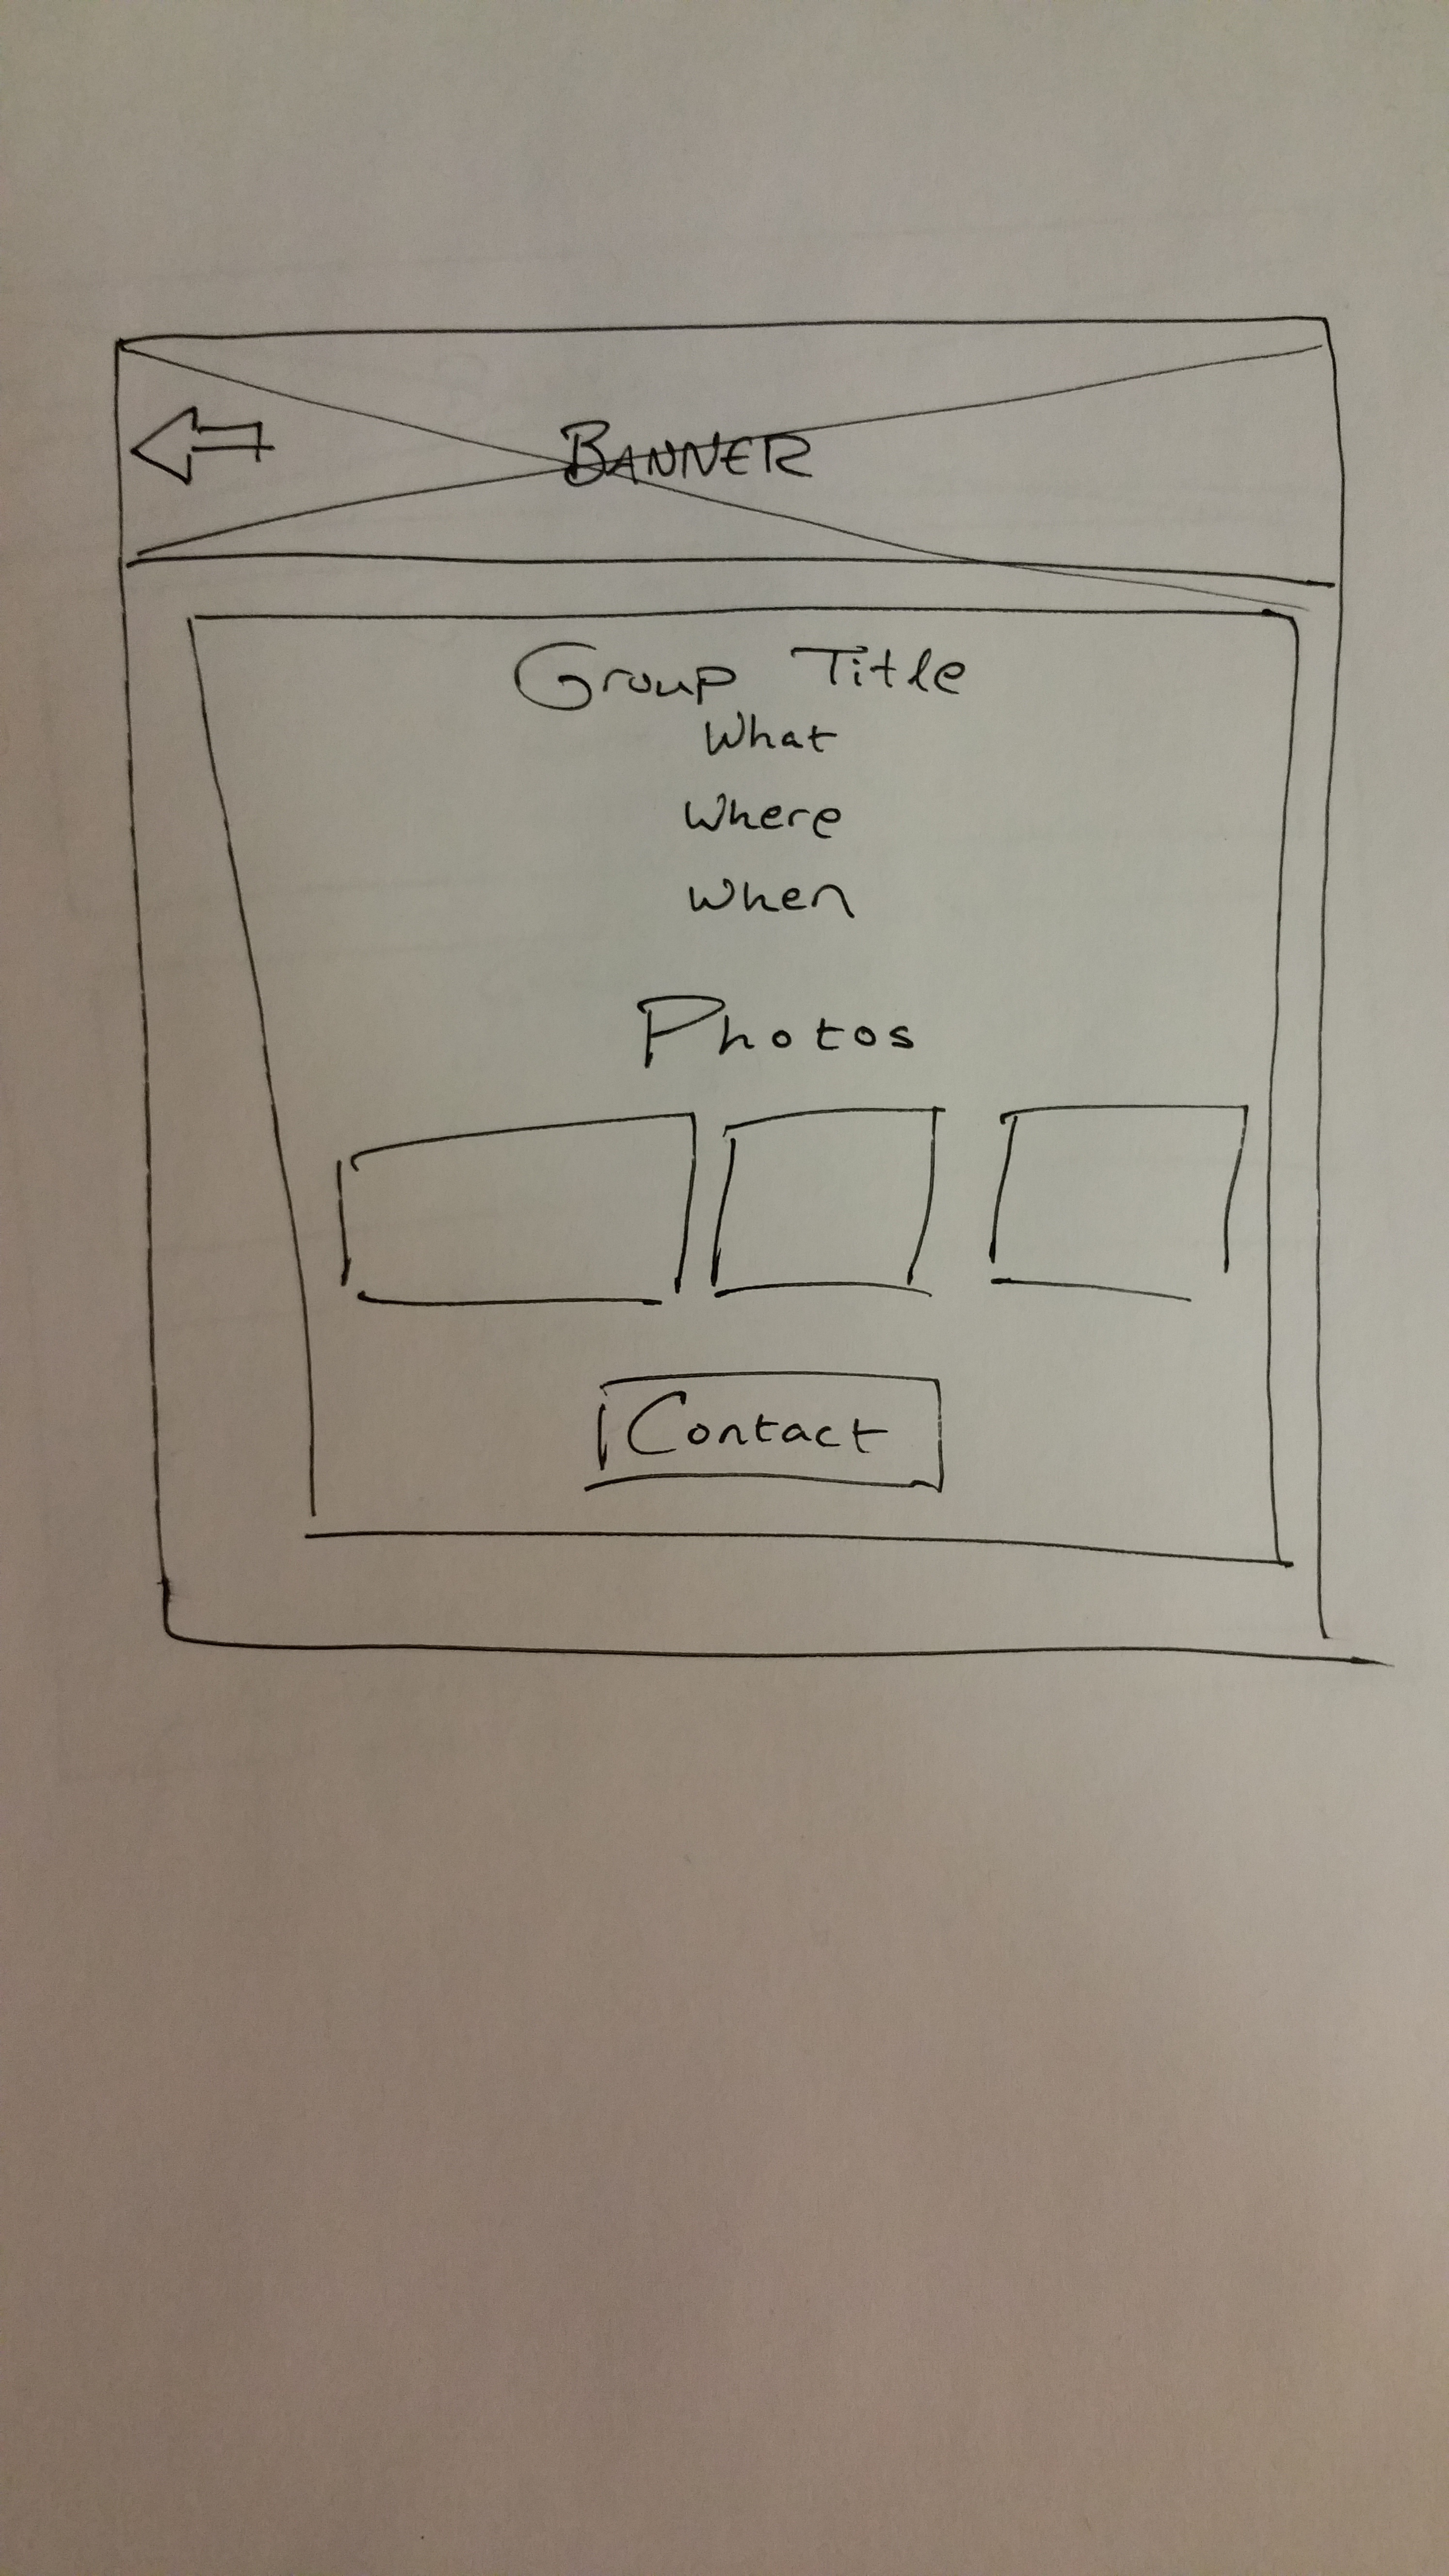 BANNER
Group Title
What
Where
When
Photos
Contact